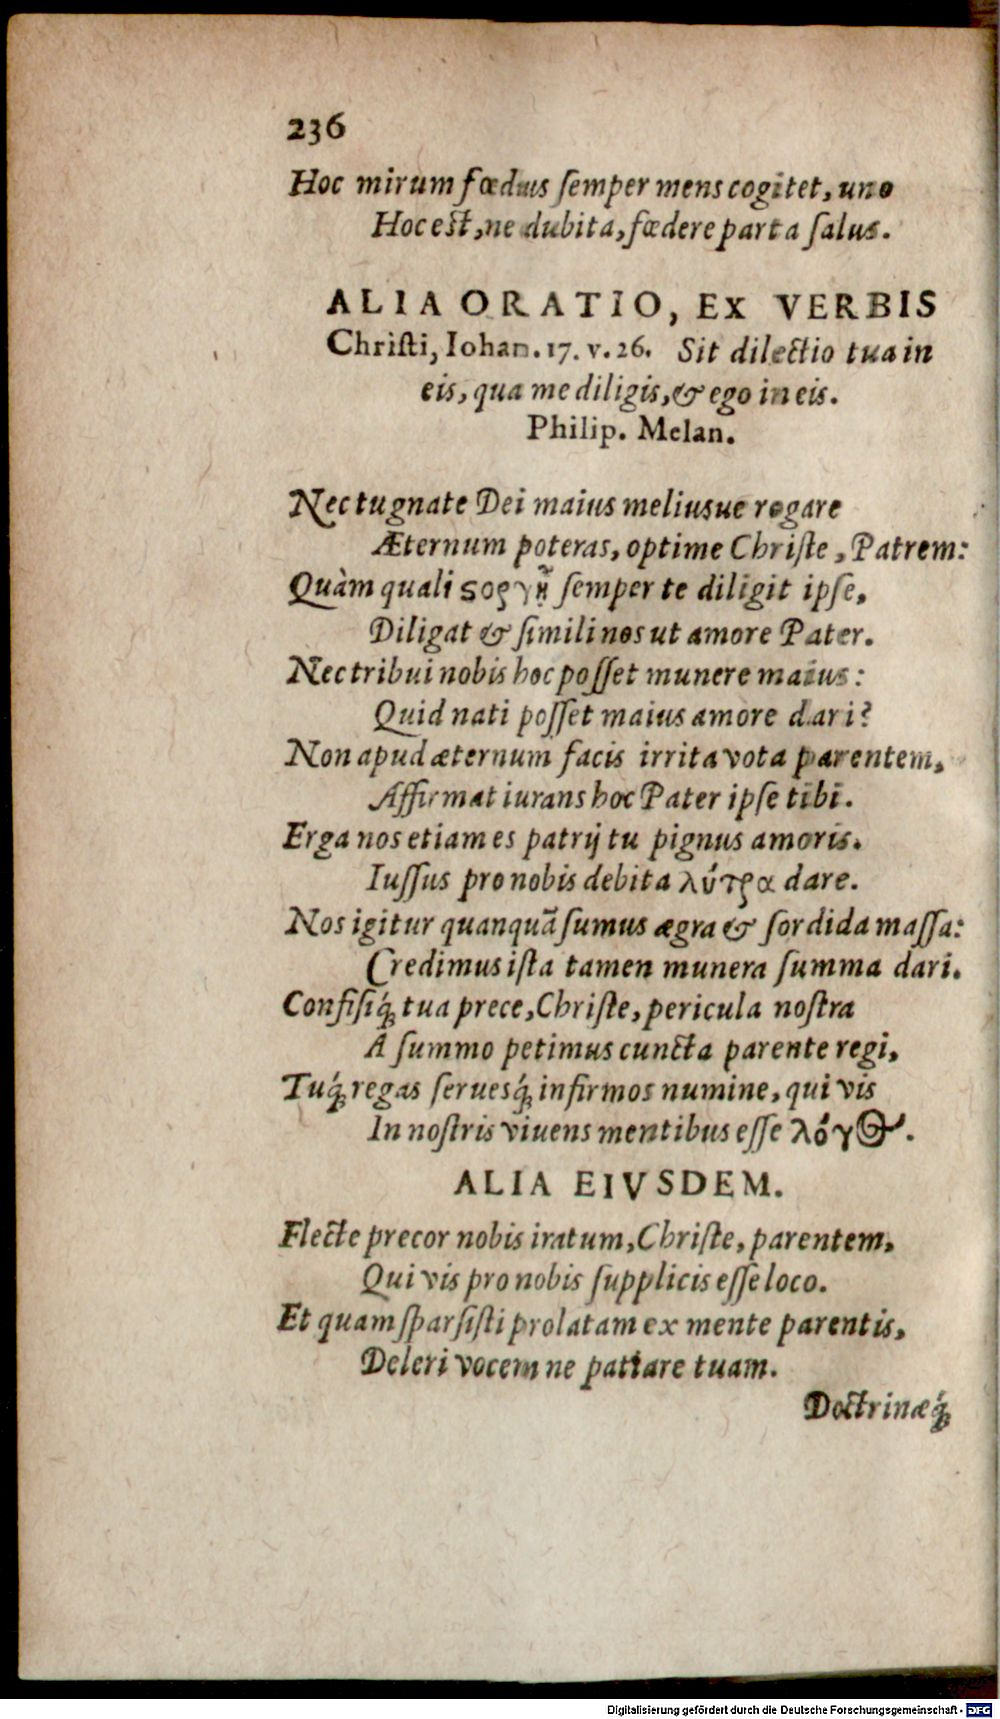 236
Hoc mirum fœdus ſemper mens cogitet, uno
Hoc eſt, ne dubita, fœdere parta ſalus.
ALIA ORATIO, EX VERBIS
Chriſti, Iohan. 17. v. 26. Sit dilectio tua in
eis, qua me diligis, & ego in eis.
Philip. Melan.
Nec tu gnate Dei maius meliusue rogare
Æternum poteras, optime Chriſte, Patrem:
Quàm quali ϛοργῇ ſemper te diligit ipſe,
Diligat & ſimili nos ut amore Pater.
Nec tribui nobis hoc poſſet munere maius:
Quid nati poſſet maius amore dari?
Non apud æternum facis irrita vota parentem,
Affirmat iurans hoc Pater ipſe tibi.
Erga nos etiam es patrij tu pignus amoris.
Iuſſus pro nobis debita λύτρα dare.
Nos igitur quanquã ſumus ægra & ſordida maſſa:
Credimus iſta tamen munera ſumma dari.
Confiſiq́; tua prece, Chriſte, pericula noſtra
A ſummo petimus cuncta parente regi,
Tuq́; regas ſerueſq́; infirmos numine, qui vis
In noſtris viuens mentibus eſſe λόγος.
ALIA EIVSDEM.
Flecte precor nobis iratum, Chriſte, parentem,
Qui vis pro nobis ſupplicis eſſe loco.
Et quam ſparſiſti prolatam ex mente parentis,
Deleri vocem ne patiare tuam.
Doctrinæq́;
Digitalisierung gefördert durch die Deutsche Forschungsgemeinschaft - DFG